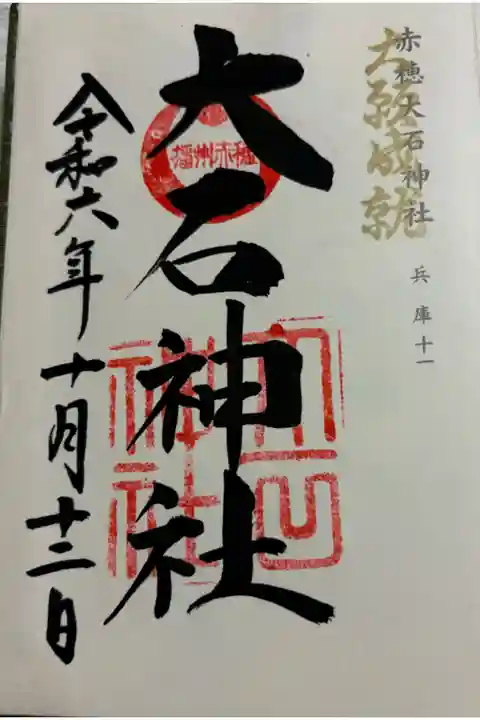 大願成就
赤穂大石神社
兵庫十一
播州赤穂
大石神社
大石神社
令和六年十月十二日